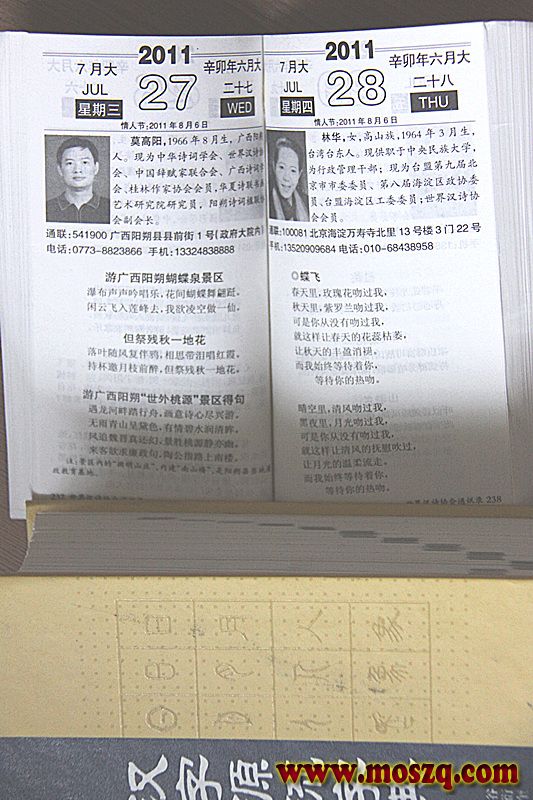 7月大
JUL
星期三
2011
27
辛卯年六月大
二十七
WED
情人节:2011年8月6日
莫高阳,1966年8月生,广西阳朔
人。现为中华诗词学会、世界汉诗协
会、中国辞赋家联合会、广西诗词学
会、桂林作家协会会员,华夏诗联书画
艺术研究院研究员,阳朔诗词楹联协
会副会长。
通联:541900 广西阳朔县县前街1号(政府大院内)
电话:0773-8823866 手机:13324838888
游广西阳朔蝴蝶泉景区
瀑布声声吟唱乐,花间蝴蝶舞翩跹。
闲云飞入莲峰去,我欲凌空做一仙。
但祭残秋一地花
落叶随风复伴鸦,相思带泪唱红霞。
持杯邀月枝前醉,但祭残秋一地花。
游广西阳朔“世外桃源”景区得句
遇龙河畔踏行舟,画意诗心尽兴游。
无雨青山呈黛色,有情碧水润清眸。
风追魏晋真远幻,景胜桃源静亦幽。
来客欲求廉政句,陶公指路上南楼。
237 世界汉诗协会通讯录
7月大
JUL
星期四
2011
28
辛卯年六月大
二十八
THU
情人节:2011年8月6日
林华,女,高山族,1964年3月生,
台湾台东人。现供职于中央民族大学,
为行政管理干部;现为台盟第九届北
京市市委委员、第八届海淀区政协委
员、台盟海淀区工委委员;世界汉诗协
会会员。
通联:100081 北京海淀万寿寺北里13号3门22号
手机:13520909684 电话:010-68438958
◎蝶飞
春天里,玫瑰花吻过我,
秋天里,紫罗兰吻过我,
可是你从没有吻过我,
就这样让春天的花蕊枯萎,
让秋天的丰盈消褪,
而我始终等待着你,
等待你的热吻。
晴空里,清风吻过我,
黑夜里,月光吻过我,
可是你从没有吻过我,
就这样让清风的抚慰吹过
让月光的温柔流走。
而我始终等待着你,
等待你的热吻。
世界汉诗协会通讯录 238
日 月 人
汉字源
www.moszq.com